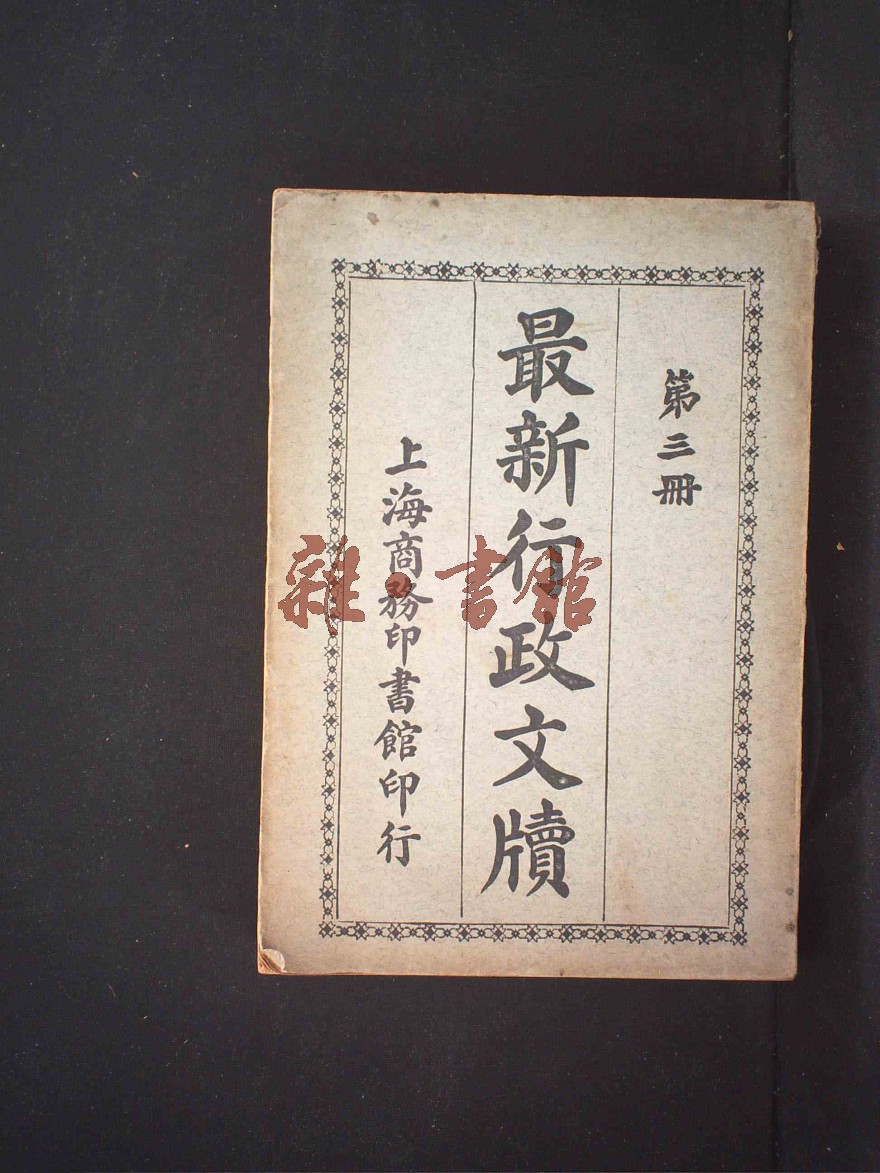 第三冊
最新行政文牘
上海商務印書館印行
雜·書館